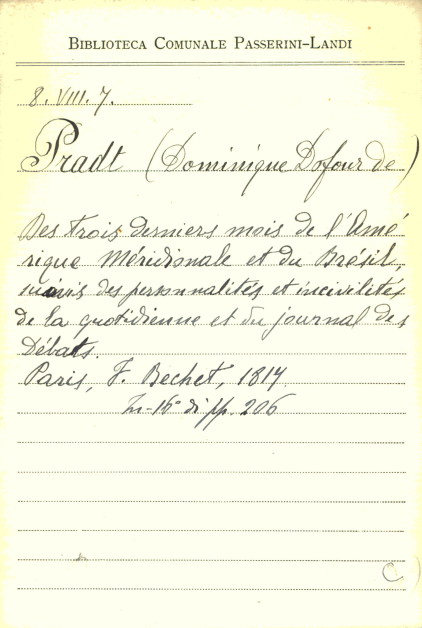 BIBLIOTECA COMUNALE PASSERINI-LANDI
8. VIII. 7.
Pradt (Dominique Dofour de)
Des trois derniers mois de l'Amé
rique Méridionale et du Brésil,
suivis des personnalités et incivilités
de la quotidienne et du journal des
Débats.
Paris, F. Bechet, 1817.
In-16° di pp. 206
C